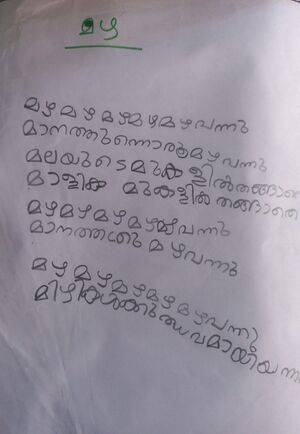 മഴ
മഴ മഴ മഴമഴമഴവന്നു
മാനത്തുന്നൊരുമഴവന്നു
മലയുടെമുകളിൽതങ്ങാതെ
മാളിക മുകളിൽ തങ്ങാതെ
മഴമഴമഴമഴവന്നു
മാനത്തൂന്നു മഴവന്നു
മഴ മഴമഴമഴമഴവന്നു